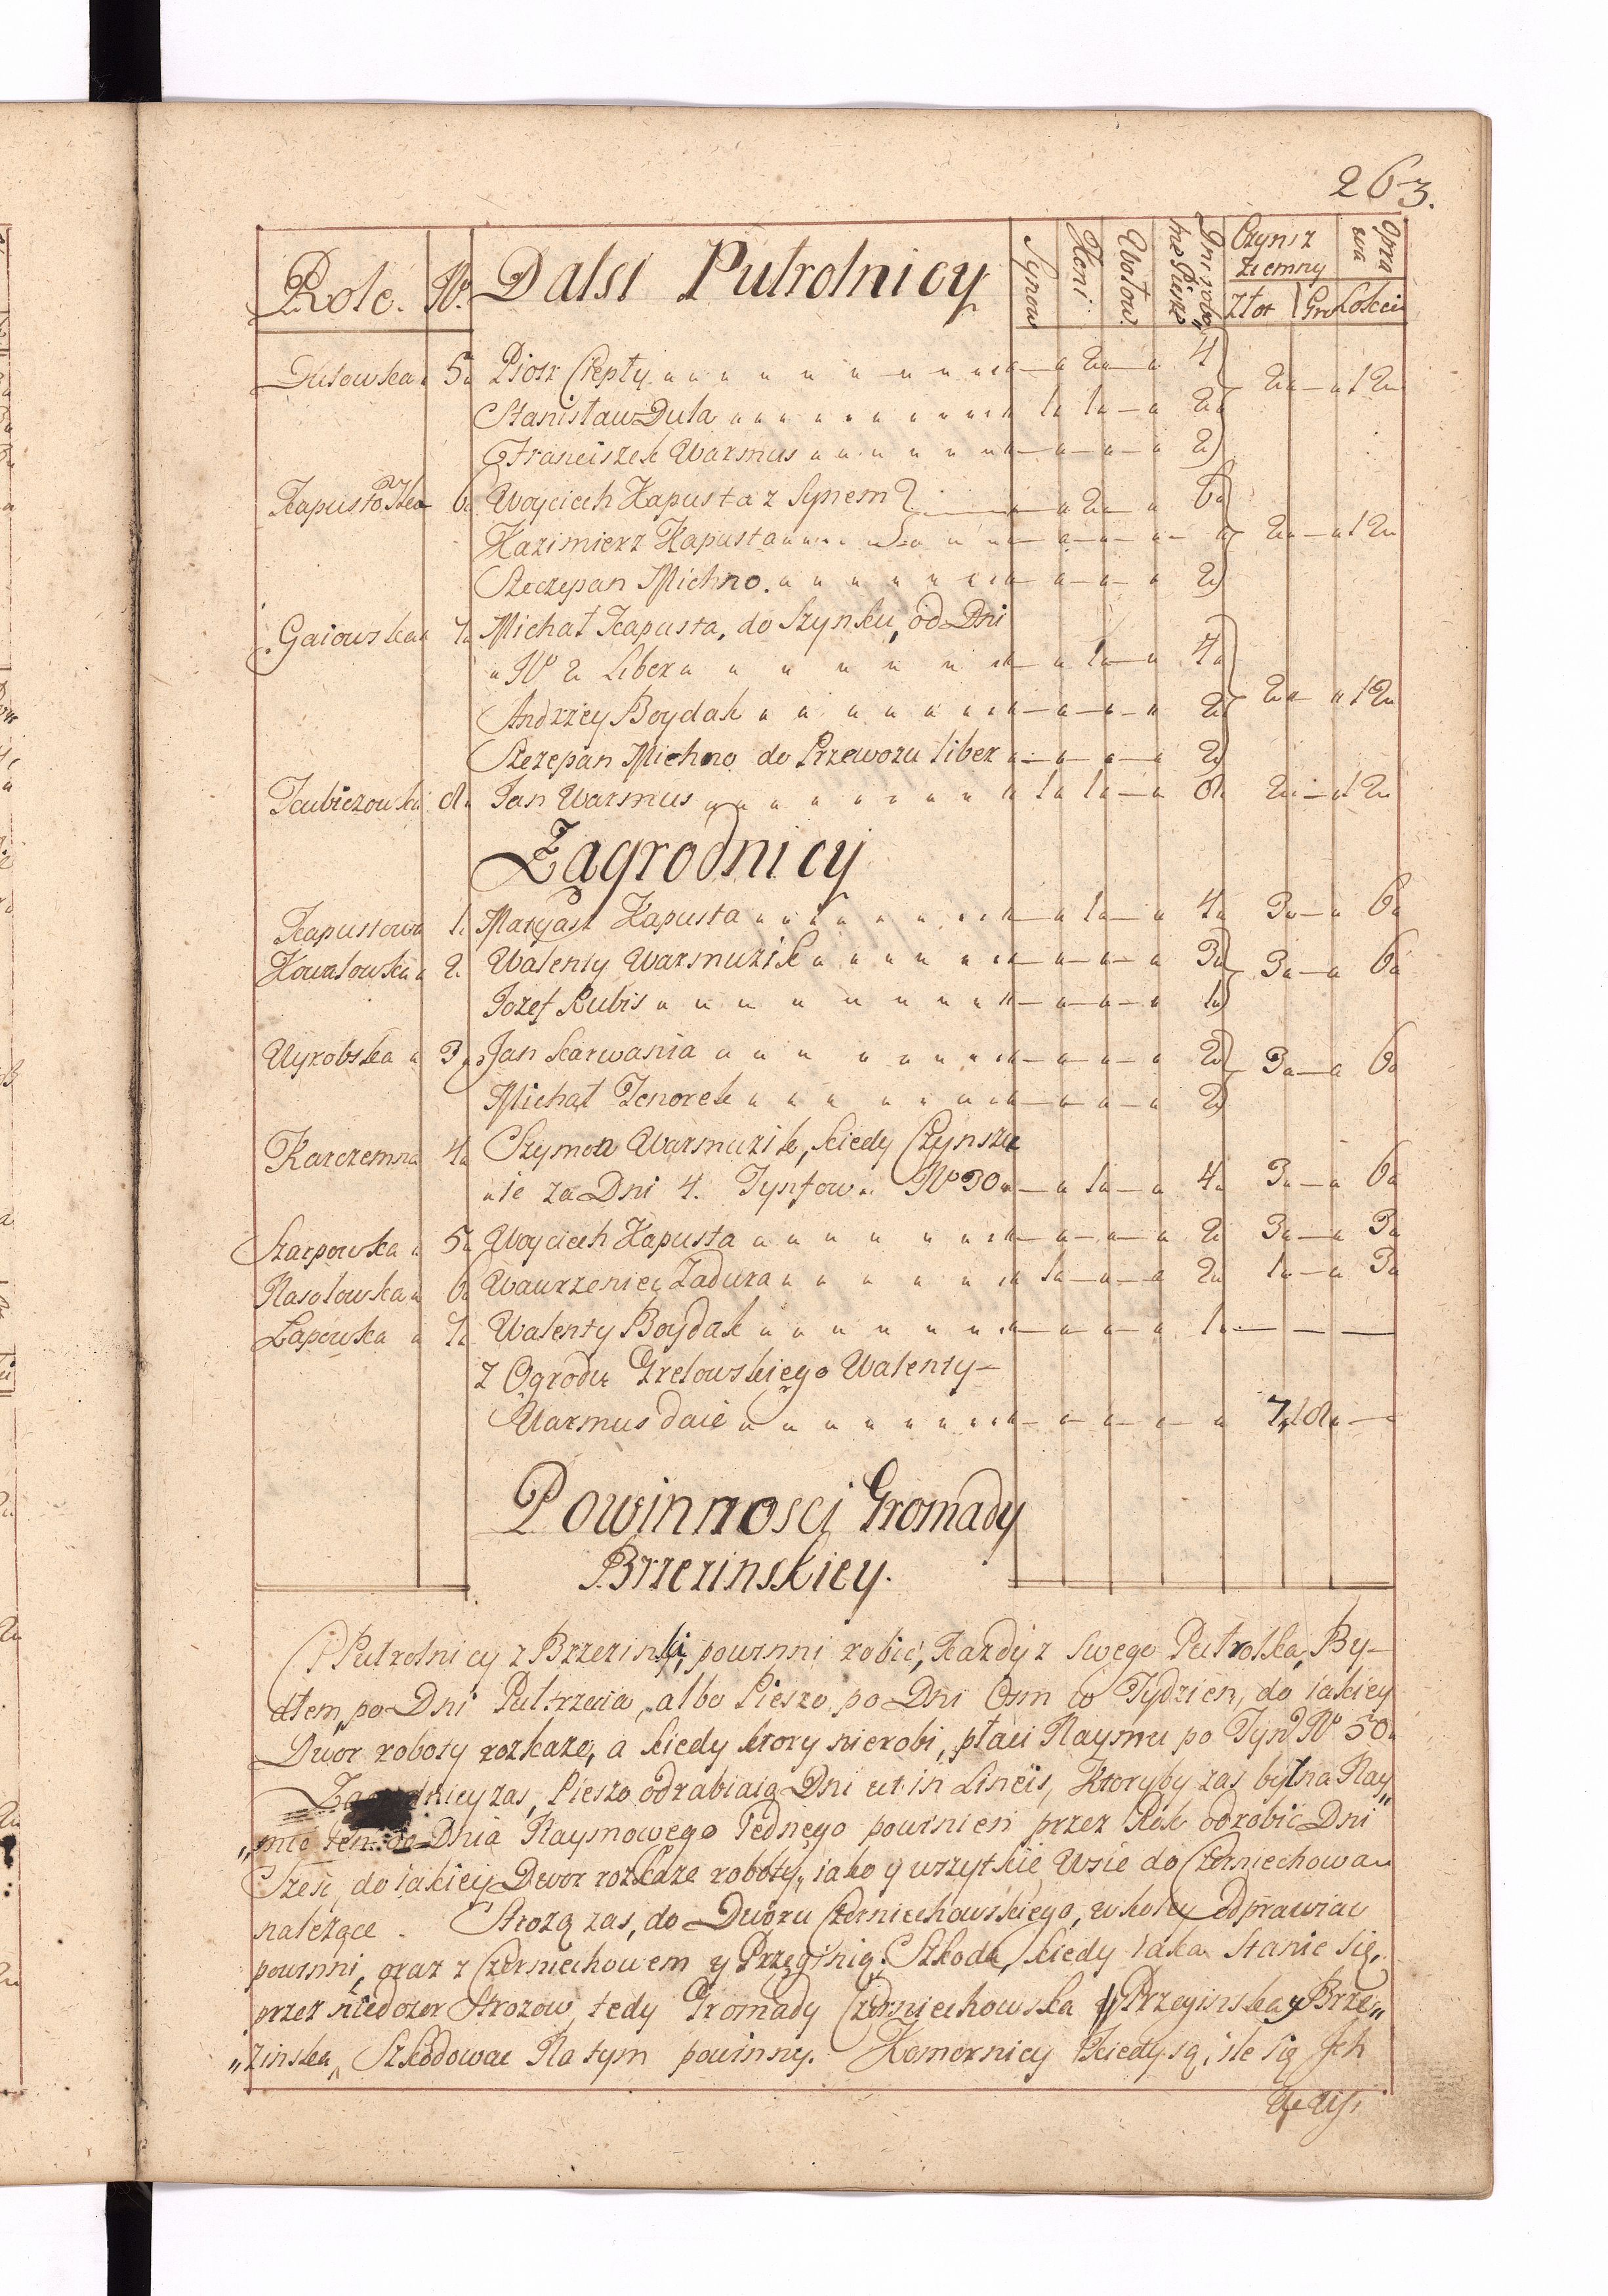 263.
Role. | No. | Dalsi Pułrolnicy | Synow | Koni | Wołow | Dni robo„ tne Piesze | Czynsz Ziemny Złot | Gro | Oprawa Łokci
Dutowska 5 Piotr Ciepły — 2 — 4 2 — 12
Stanisław Duła 1 1 — 2
Franciszek Warmus — — — 2
Kapusczka 6 Woyciech Kapusta z Synem — 2 — 6
Kazimierz Kapusta — — — — 2 — 12
Szczepan Michno. — — — 2
Gaiowska 7 Michał Kapusta, do Szynku, od Dni
No 2 Liber — 1 — 4
Andrzey Boydak — — — 2 2 — 12
Szczepan Michno do Przewozu liber — — — 2
Kubiczowska 8 Jan Warmus 1 1 — 8 2 — 12
Zagrodnicy
Kapustowa 1 Maryasz Kapusta — 1 — 4 3 — 6
Kowalowska 2 Walenty Warmuzik — — — 3 3 — 6
Jozef Kubis — — — 1
Wyrobska 3 Jan Karwania — — — 2 3 — 6
Michał Zenorek — — — 2
Karczemna 4 Szymon Warmuzik, kiedy Czynszu
ie za Dni 4. Tynfow No 30 — 1 — 4 3 — 6
Szarpowska 5 Woyciech Kapusta — — — 2 3 — 3
Nasolowska 6 Wawrzeniec Zadura 1 — — 2 1 — 3
Łapowska 7 Walenty Boydak — — — 1 — — —
Z Ogrodu Grelowskiego Walenty
Warmus daie — — — — 7 18 —
Powinnosci Gromady
Brzezinskiey.
Pułrolnicy z Brzezinki, powinni robic, Kazdy z swego Pułrolka, By-
dłem, po Dni Pułtrzecia, albo Pieszo po Dni Osm w Tydzien, do iakiey
Dwor roboty rozkaze, a kiedy ktory nie robi, płaci Naymu po Tynf No 50
Zagrodnicy zas, Pieszo odrabiaią Dni ut in Lineis, Ktoryby zas był na Nay„
„mie ten do Dnia Naymowego Iednego powinien przez Rok odrobic Dni
Szesc, do iakiey Dwor rozkaze roboty, iako y wszytkie Wsie do Czerniechowa
nalezące. Strozą zas, do Dworu Czerniechowskiego, w koley odprawiac
powinni, oraz z Czerniechowem y Przeginią. Szkoda, kiedy iaka stanie się,
przez niedozor Strozow, tedy Gromady Czerniechowska Przeginska y Brze„
„zinska, Szkodowac Na tym powinny. Komornicy kiedy są, ile się Ich